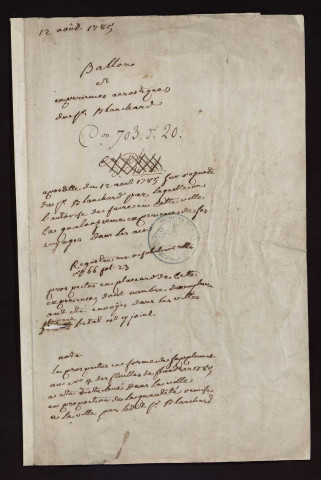 12 août 1785
Ballon
et
experiences aerostatiques
du Sr. Blanchard
Con 703. d. 20.
apostille du 12 aout 1785 sur requete
du Sr. Blanchard par laquelle on
l'autorise de faire en cette ville
la quatorzieme experience de ses
voyages dans les airs
Registre aux resolutions
no 66 fol. 23
prospectus en placard de cette
experience, dont nombre d'exemplaires
ont été envoyés dans les villes
l'etat est cy joint.
nota
le prospectus en forme de supplement
au no 4 des feuilles de flandres 1785
a eté distribué dans la ville
en proportion de la quantité remise
a la ville par ledit Sr. Blanchard